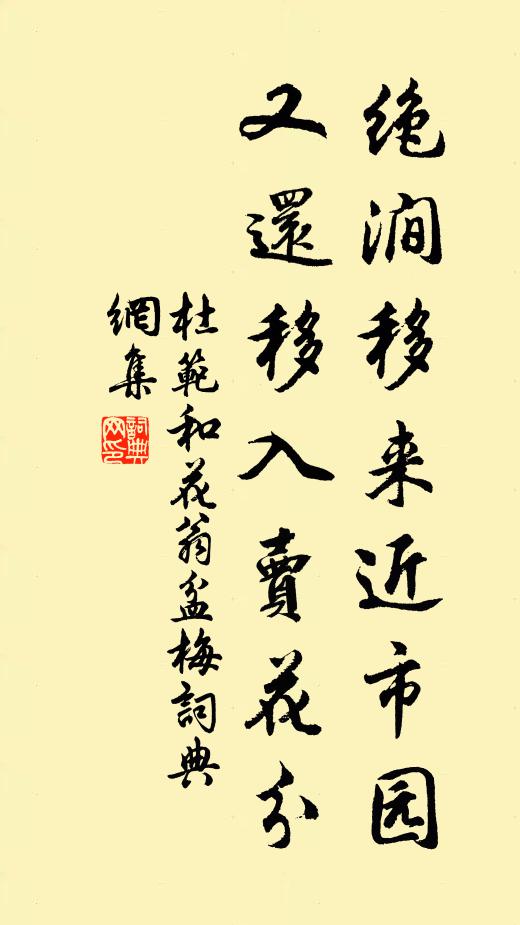 绝澗移来近市园
又還移入賣花分
杜範和花翁盆梅詞典
網集
詞典
网印